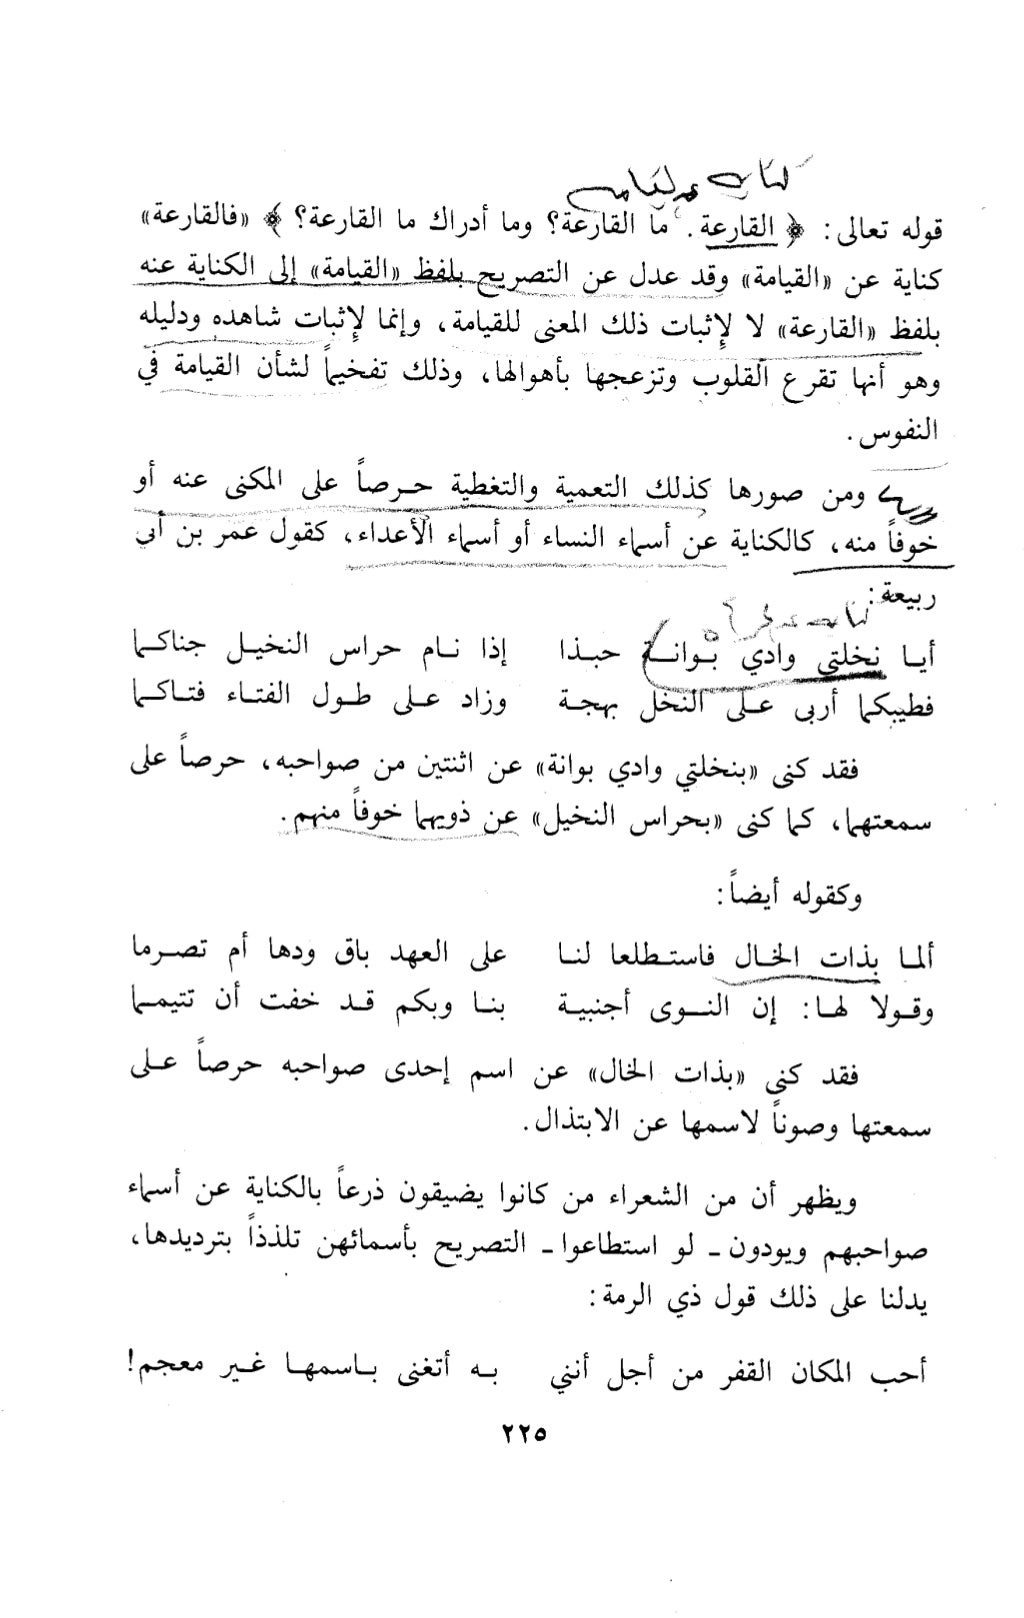 كناية عن القيامة
قوله تعالى: ﴿ القارعة. ما القارعة؟ وما أدراك ما القارعة؟ ﴾ «فالقارعة»
كناية عن «القيامة» وقد عدل عن التصريح بلفظ «القيامة» إلى الكناية عنه
بلفظ «القارعة» لا لإثبات ذلك المعنى للقيامة، وإنما لإثبات شاهده ودليله
وهو أنها تقرع القلوب وتزعجها بأهوالها، وذلك تفخيماً لشأن القيامة في
النفوس.
ومن صورها كذلك التعمية والتغطية حرصاً على المكنى عنه أو
خوفاً منه، كالكناية عن أسماء النساء أو أسماء الأعداء، كقول عمر بن أبي
ربيعة:
أيا نخلتي وادي بوانة حبذا إذا نام حراس النخيل جناكما
فطيبكما أربى على النخل بهجة وزاد على طول الفتاء فتاكما
فقد كنى «بنخلتي وادي بوانة» عن اثنتين من صواحبه، حرصاً على
سمعتهما، كما كنى «بحراس النخيل» عن ذويهما خوفاً منهم.
وكقوله أيضاً:
ألما بذات الخال فاستطلعا لنا على العهد باق ودها أم تصرما
وقولا لها: إن النوى أجنبية بنا وبكم قد خفت أن تتيمما
فقد كنى «بذات الخال» عن اسم إحدى صواحبه حرصاً على
سمعتها وصوناً لاسمها عن الابتذال.
ويظهر أن من الشعراء من كانوا يضيقون ذرعاً بالكناية عن أسماء
صواحبهم ويودون ـ لو استطاعوا ـ التصريح بأسمائهن تلذذاً بترديدها،
يدلنا على ذلك قول ذي الرمة:
أحب المكان القفر من أجل أنني به أتغنى باسمها غير معجم!
٢٢٥